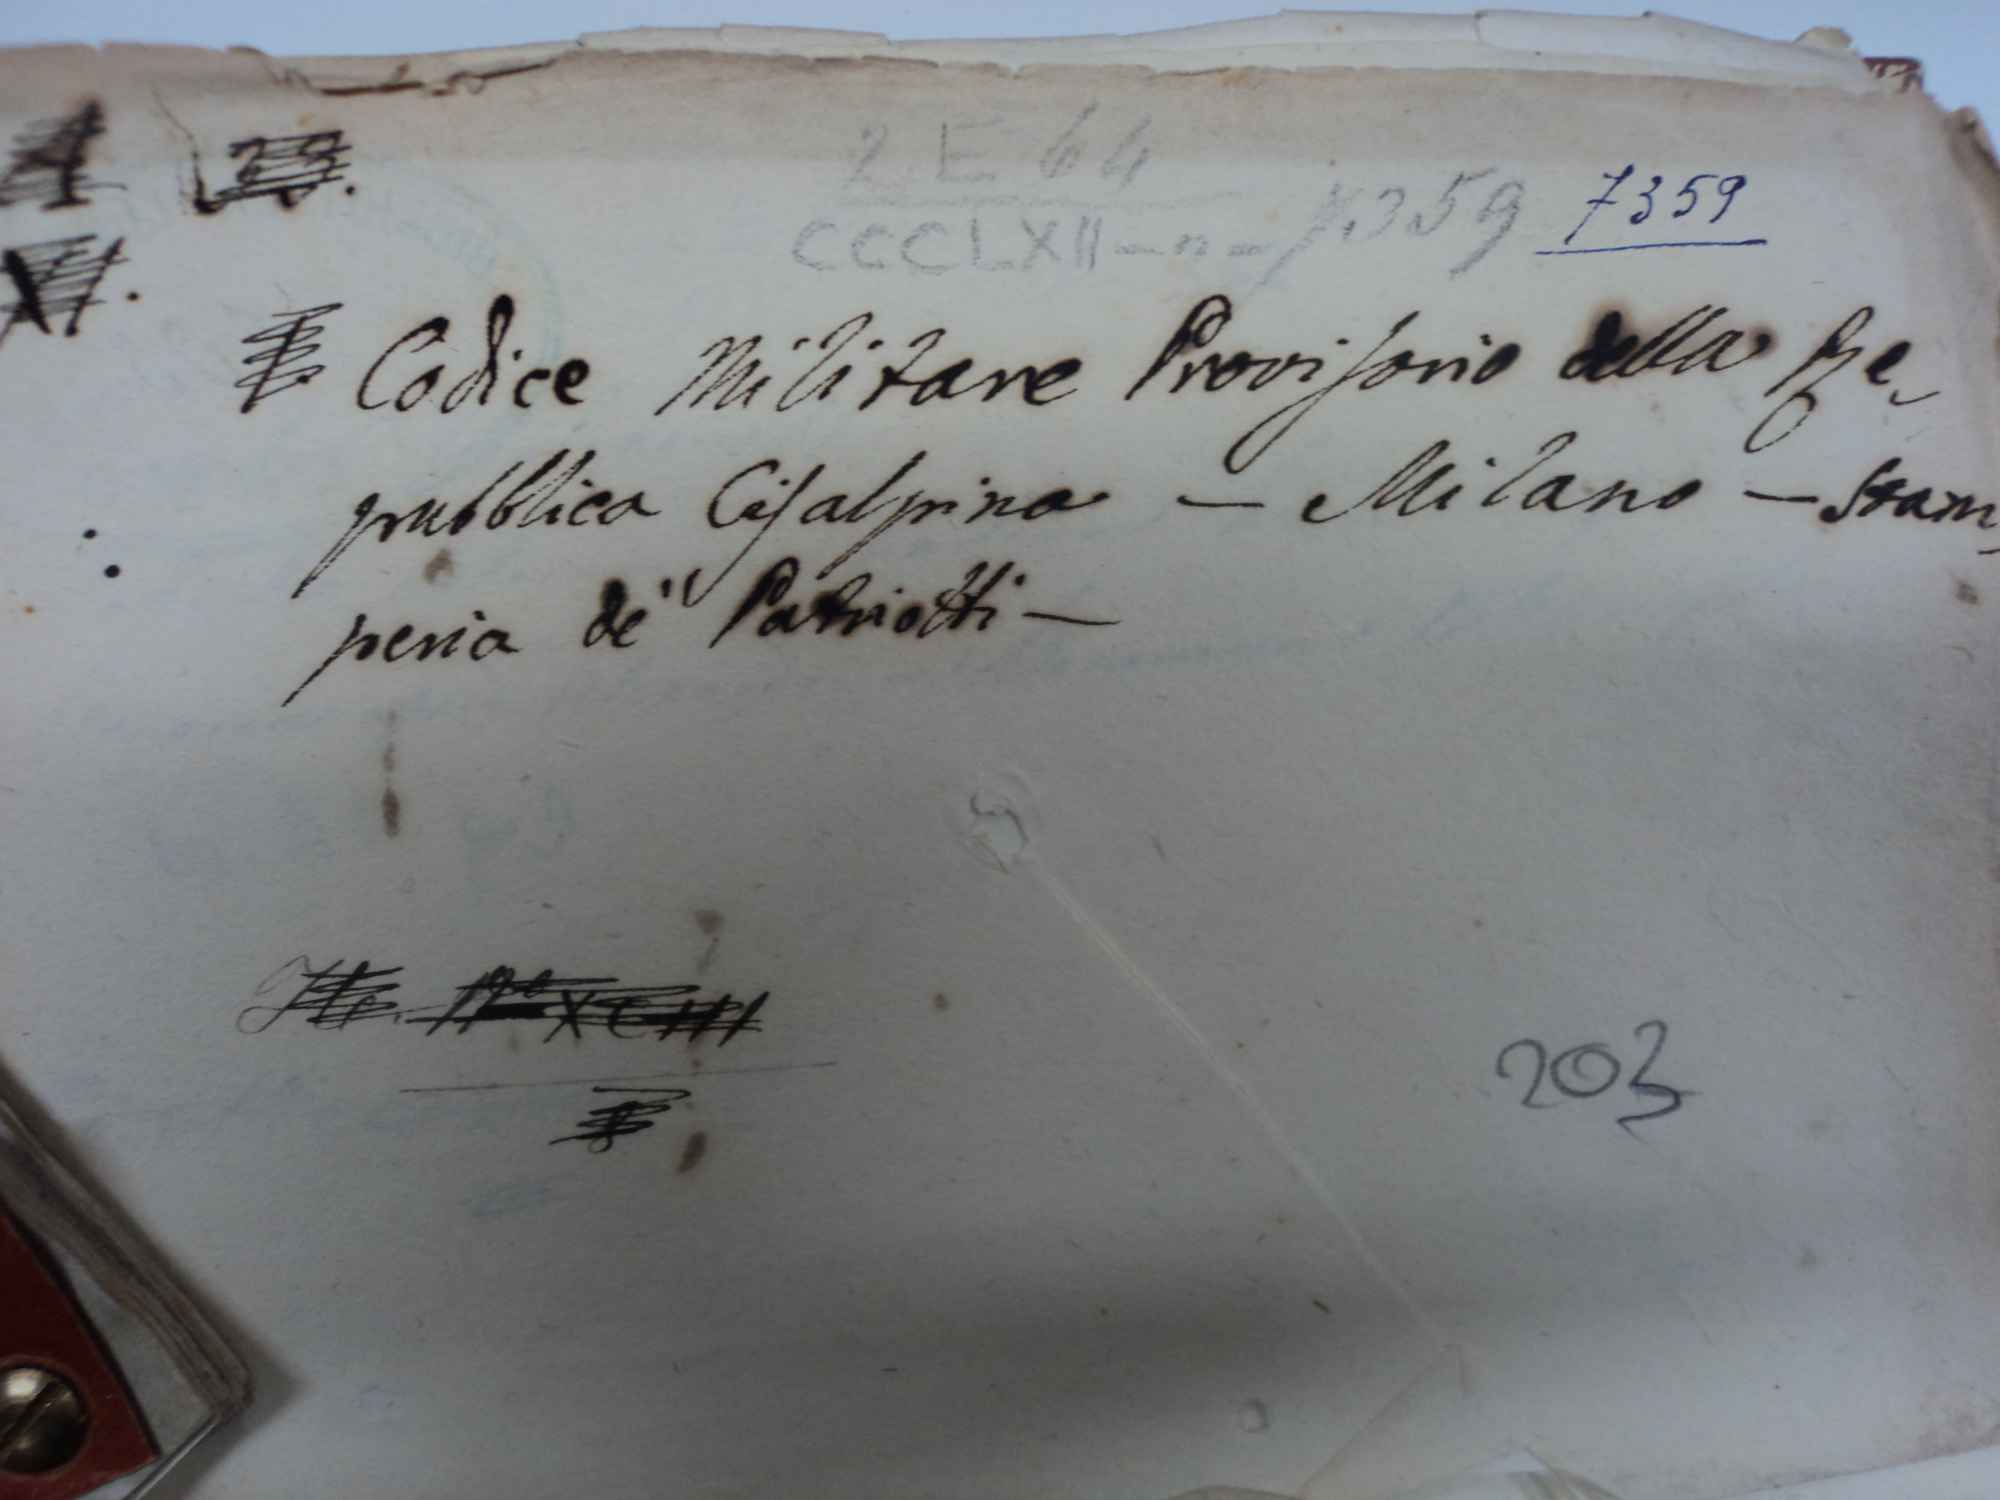 2 E 64
CCCLXII - n - 7359 7359
Codice Militare Provisorio della Re-
pubblica Cisalpina — Milano — Stam-
peria de' Patriotti —
XCIII
203